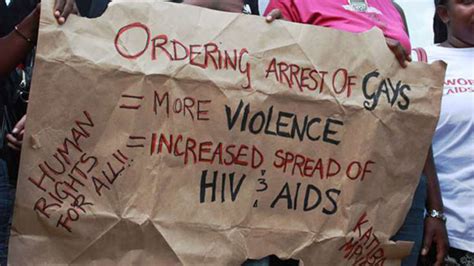 ORDERING ARREST OF GAYS
= MORE VIOLENCE
= INCREASED SPREAD OF
HIV & AIDS
HUMAN
RIGHTS
FOR ALL!!
AIDS